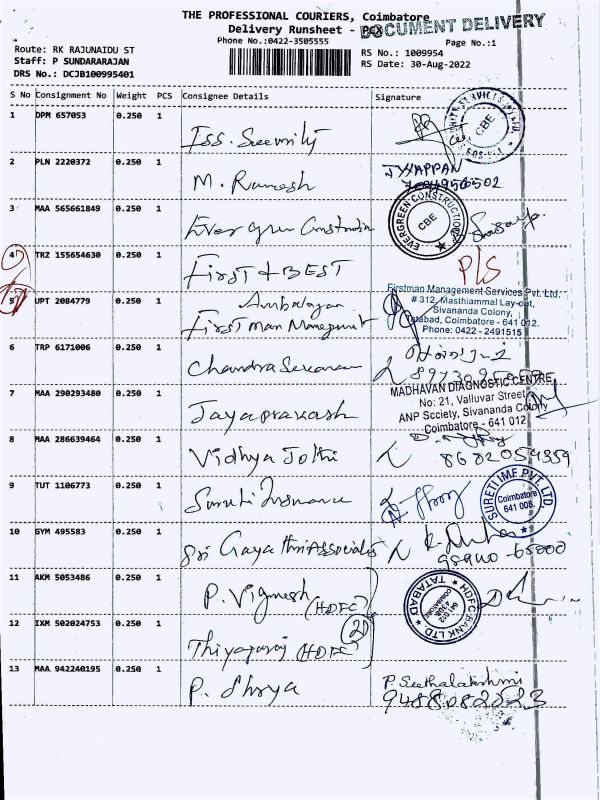 THE PROFESSIONAL COURIERS, Coimbatore
Delivery Runsheet - POD
DOCUMENT DELIVERY
Phone No.:0422-3505555
Page No.:1
Route: RK RAJUNAIDU ST
RS No.: 1009954
Staff: P SUNDARARAJAN
RS Date: 30-Aug-2022
DRS No.: DCJB100995401
S No Consignment No Weight PCS Consignee Details Signature
1 DPM 657053 0.250 1
CBE
2 PLN 2220372 0.250 1 M. Ramesh
3 MAA 565661849 0.250 1 Evergreen Construction
EVERGREEN CONSTRUCTION
CBE
4 TRZ 155654630 0.250 1 First & BEST
5 UPT 2084779 0.250 1 Ambalagan
First man Management
Firstman Management Services Pvt. Ltd.
# 312, Masthiammal Lay-out,
Sivananda Colony,
Tatabad, Coimbatore - 641 012.
Phone: 0422 - 2491515
6 TRP 6171006 0.250 1
7 MAA 290293480 0.250 1 Jayaprakash
MADHAVAN DIAGNOSTIC CENTRE
No: 21, Valluvar Street
ANP Scciety, Sivananda Colony
Coimbatore - 641 012
8 MAA 286639464 0.250 1 Vidhya Jothi
8682054359
9 TUT 1106773 0.250 1
SURETI IMF PVT. LTD.
Coimbatore
641 008.
10 GYM 495583 0.250 1 Sri Gayathri Associates
98940-65000
11 AKM 5053486 0.250 1 P. Vignesh (HDFC)
HDFC BANK LTD.
TATABAD
12 IXM 502024753 0.250 1 Thiyagaraj (HDFC)
2
13 MAA 942240195 0.250 1 P. Dhivya
P. Seethalakshmi
9488082023